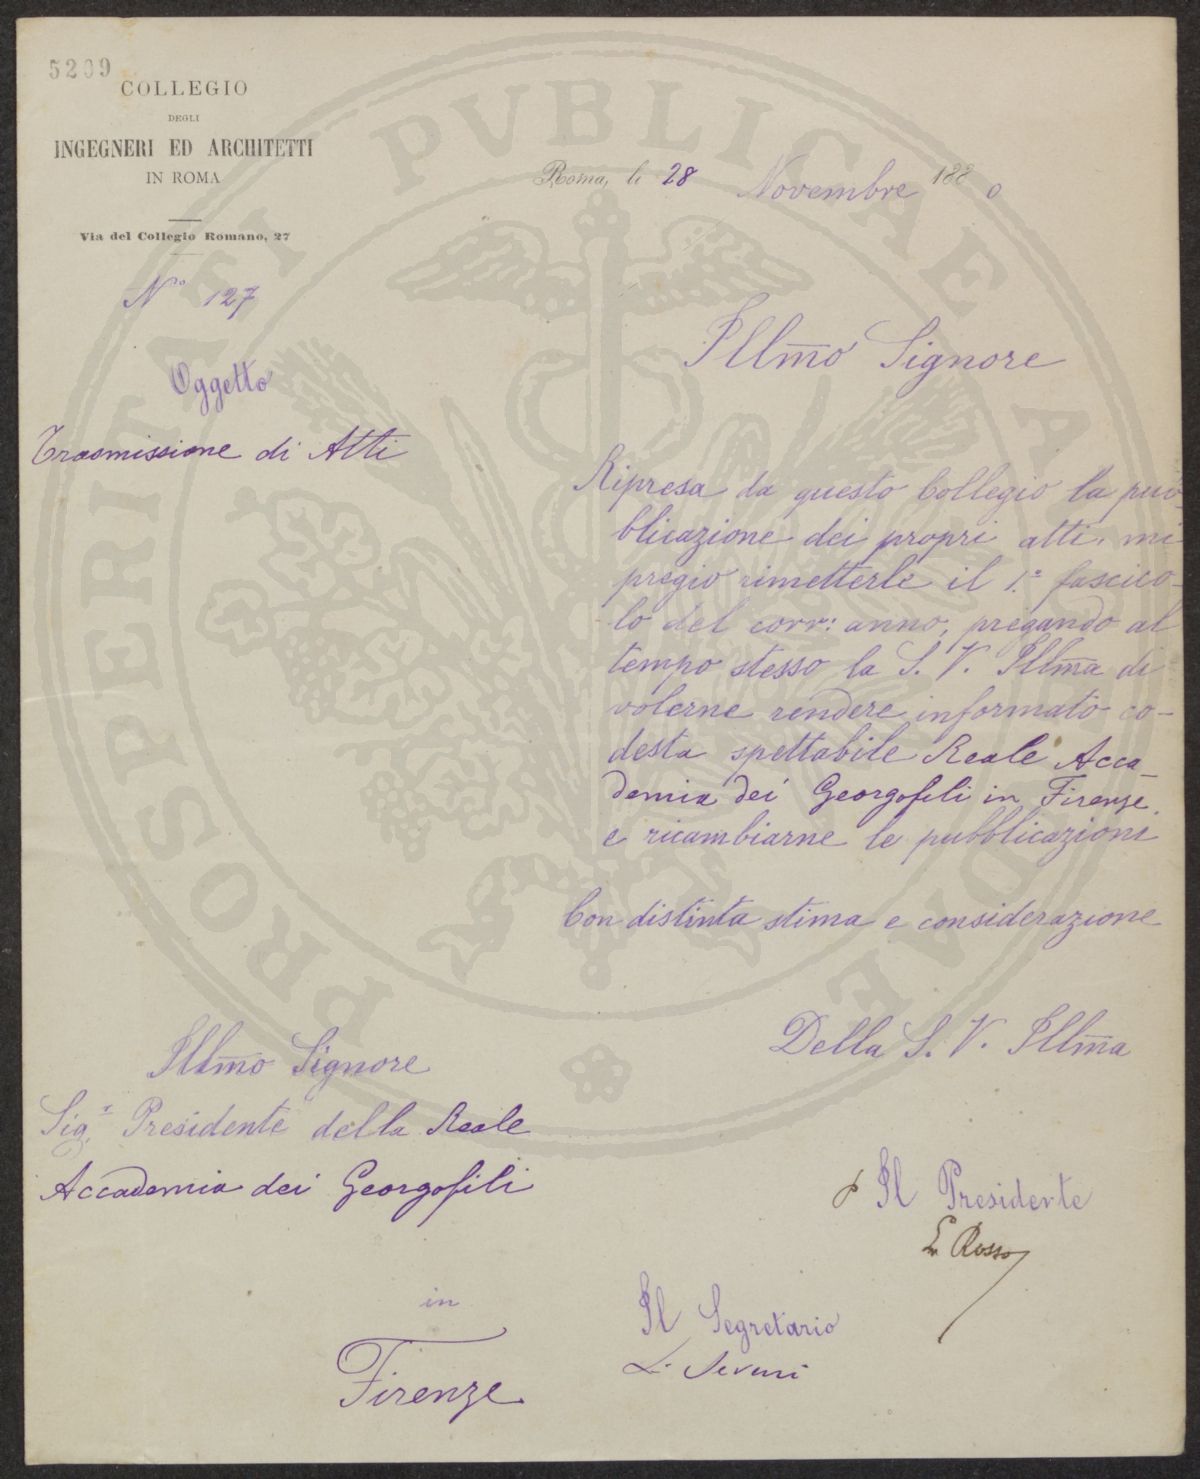 5209
COLLEGIO
DEGLI
INGEGNERI ED ARCHITETTI
IN ROMA
Via del Collegio Romano, 27
Roma, li 28 Novembre 1880
N.º 127
Oggetto
Trasmissione di Atti
Illmo Signore
Ripresa da questo Collegio la pub-
blicazione dei propri atti, mi
pregio rimetterle il 1.º fascico-
lo del corr: anno, pregando al
tempo stesso la S. V. Illma di
volerne rendere informato co-
desta spettabile Reale Acca-
demia dei Georgofili in Firenze
e ricambiarne le pubblicazioni
Con distinta stima e considerazione
Della S. V. Illma
Illmo Signore
Sig.r Presidente della Reale
Accademia dei Georgofili
in
Firenze
Il Presidente
Rosso
Il Segretario
L. Severi
PROSPERITATI PVBLICAE AVGENDAE